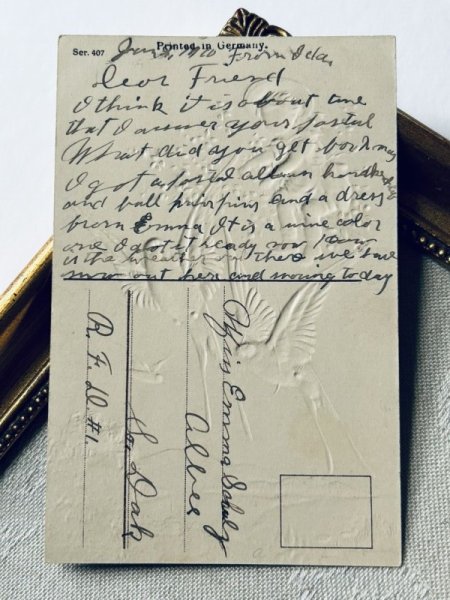 Printed in Germany.
Ser. 407
1910 From Ida
Dear Friend
I think it is about time
that I answer your postal
What did you get for
I got a postal album
and ball and a dress
from Emma It is a wine color
one I got it ready now
is the weather out there we have
snow out here and snowing today
Miss Emma Schulz
Albee
So. Dak
R. F. D. #1.